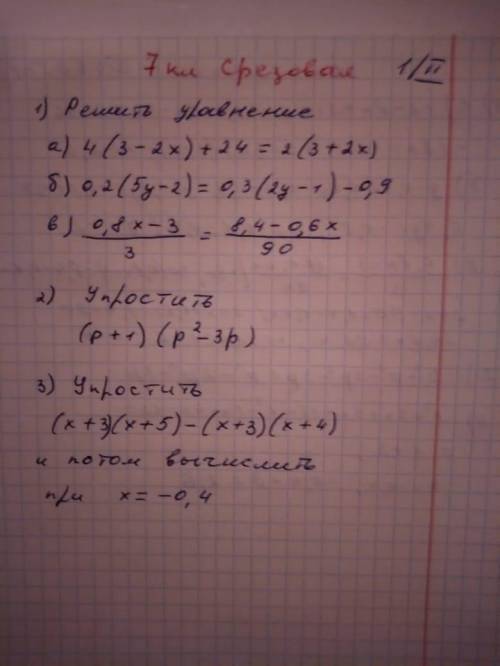 7 кл Срезовая 1/II
1) Решить уравнение
а) 4(3-2x)+24=2(3+2x)
б) 0,2(5y-2)=0,3(2y-1)-0,9
в) (0,8x-3)/3 = (8,4-0,6x)/90
2) Упростить
(p+1)(p²-3p)
3) Упростить
(x+3)(x+5)-(x+3)(x+4)
и потом вычислить
при x=-0,4